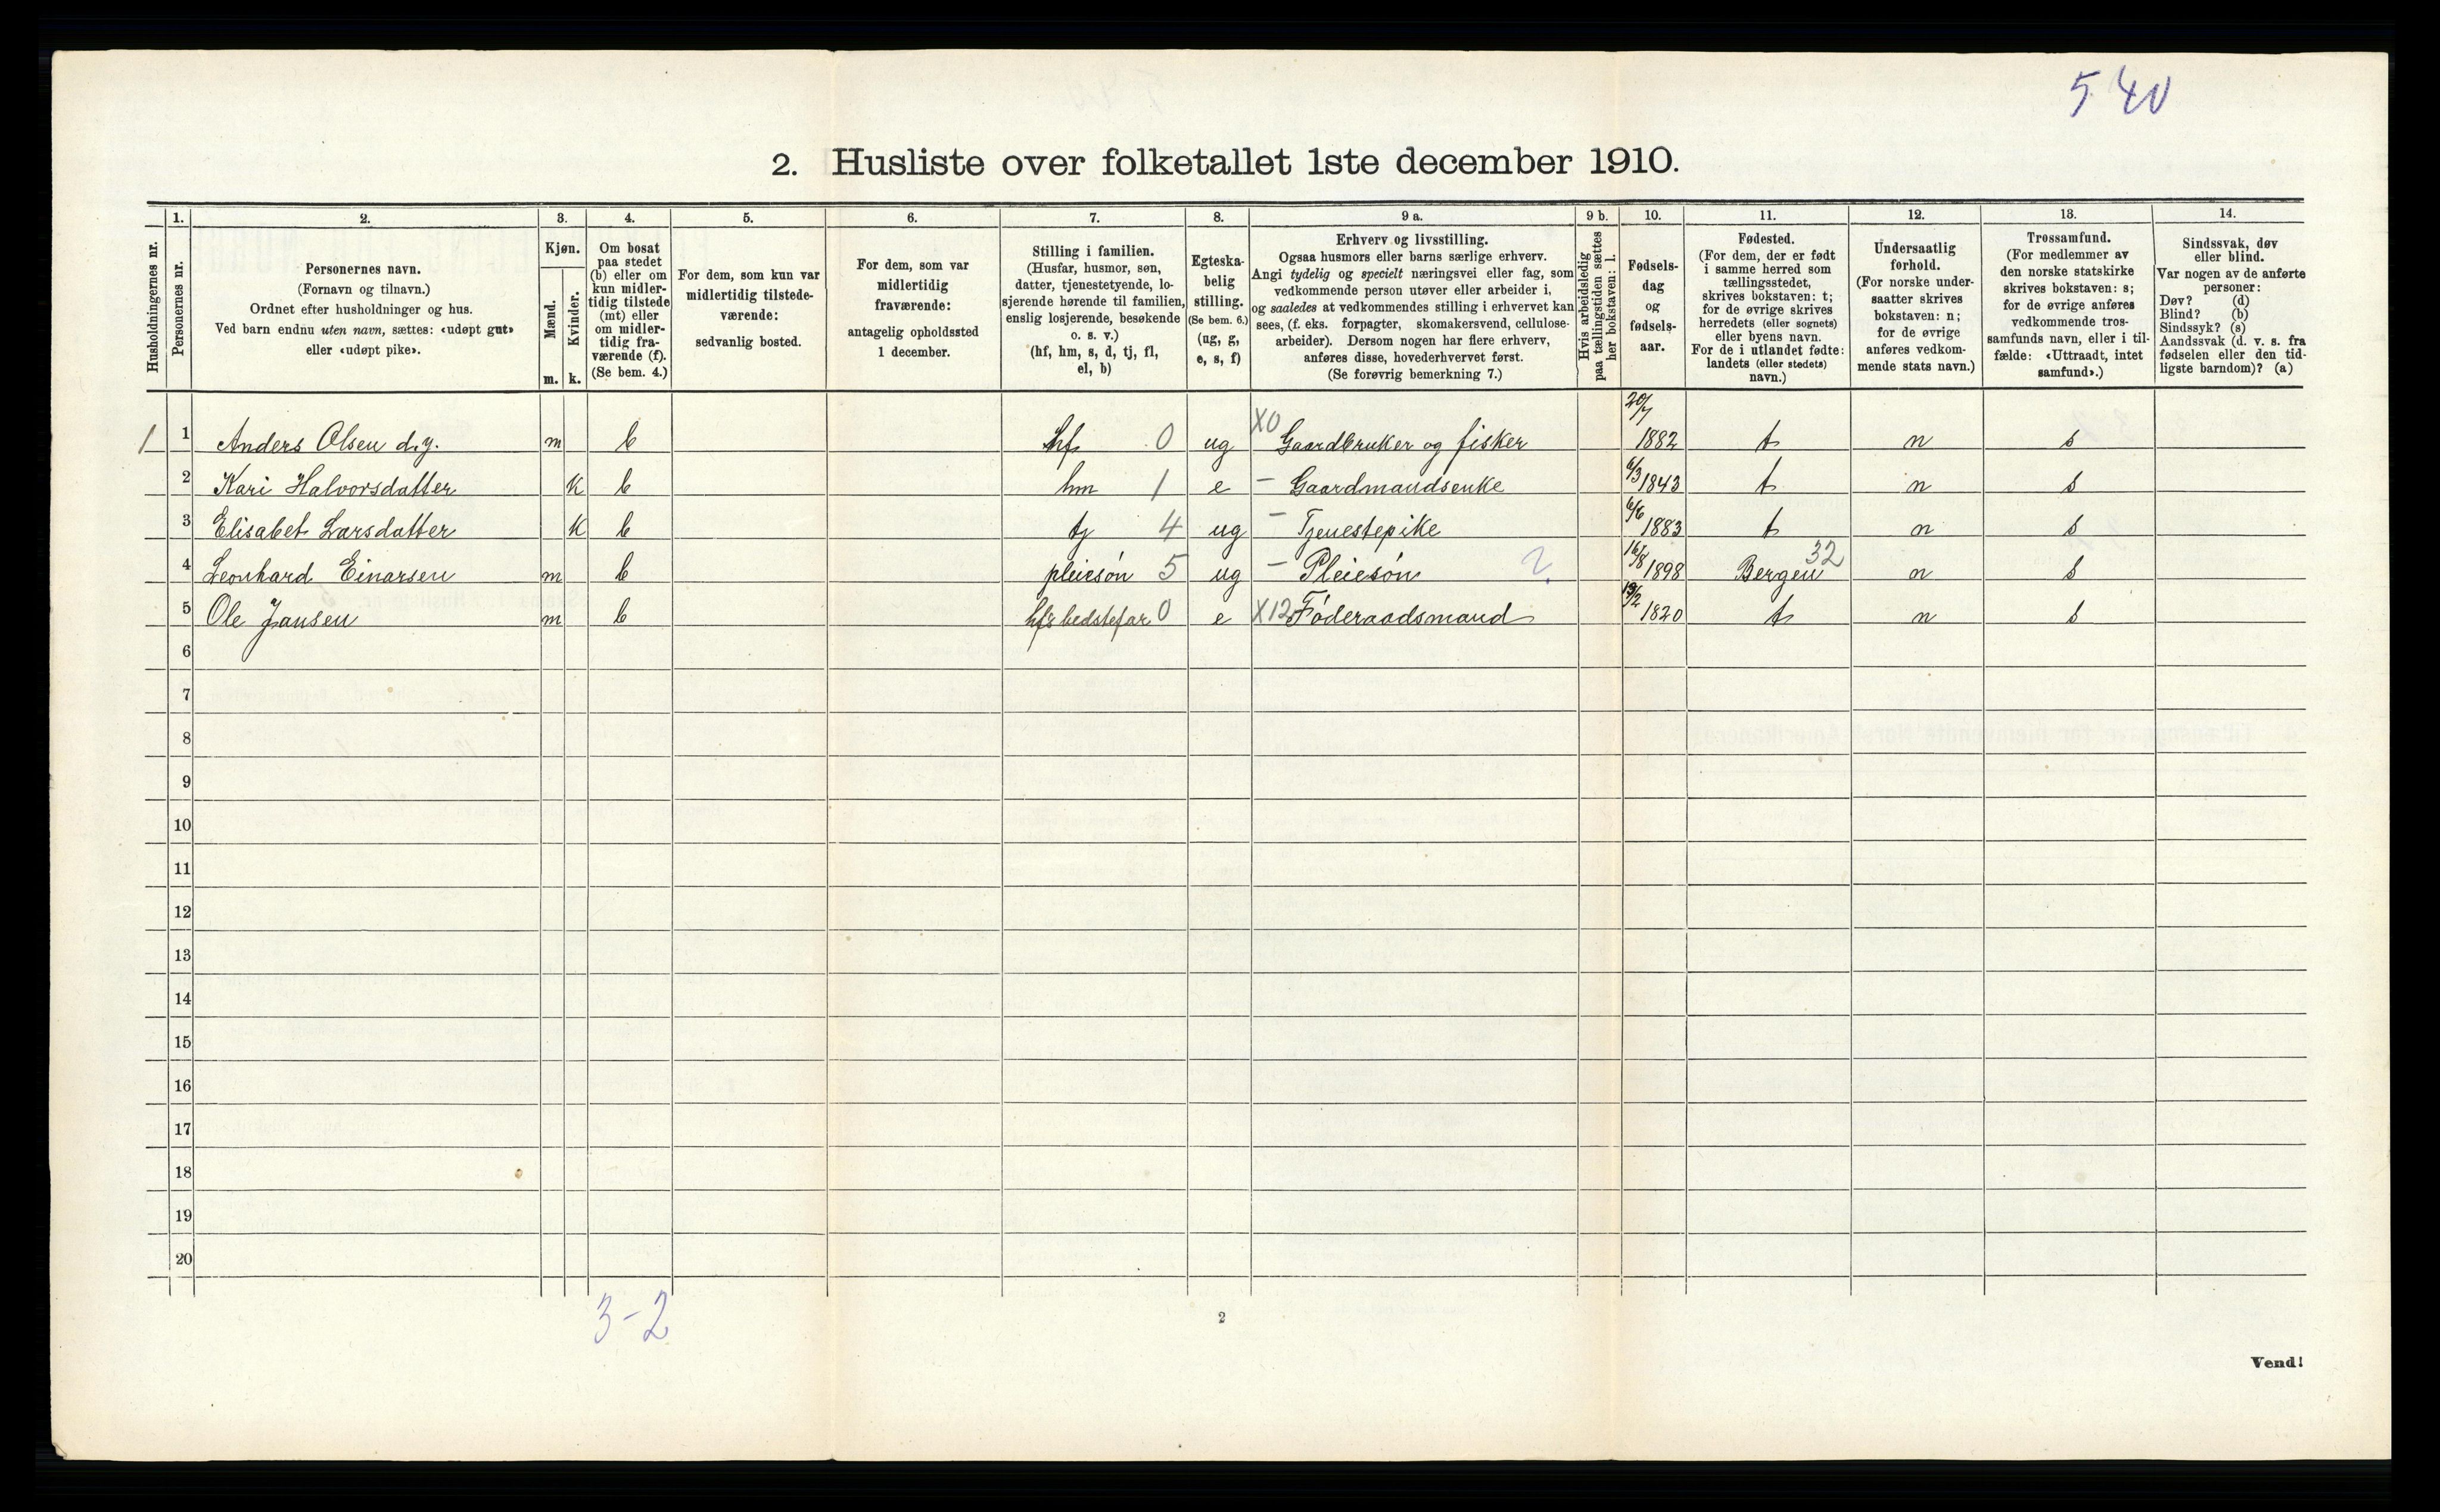 5 40
2. Husliste over folketallet 1ste december 1910.
1. 2. 3. 4. 5. 6. 7. 8. 9 a. 9 b. 10. 11. 12. 13. 14.
Husholdningernes nr.
Personernes nr.
Personernes navn.
(Fornavn og tilnavn.)
Ordnet efter husholdninger og hus.
Ved barn endnu uten navn, sættes: «udøpt gut»
eller «udøpt pike».
Kjøn.
Mænd.
Kvinder.
m. k.
Om bosat
paa stedet
(b) eller om
kun midler-
tidig tilstede
(mt) eller
om midler-
tidig fra-
værende (f).
(Se bem. 4.)
For dem, som kun var
midlertidig tilstede-
værende:
sedvanlig bosted.
For dem, som var
midlertidig
fraværende:
antagelig opholdssted
1 december.
Stilling i familien.
(Husfar, husmor, søn,
datter, tjenestetyende, lo-
sjerende hørende til familien,
enslig losjerende, besøkende
o. s. v.)
(hf, hm, s, d, tj, fl,
el, b)
Egteska-
belig
stilling.
(Se bem. 6.)
(ug, g,
e, s, f)
Erhverv og livsstilling.
Ogsaa husmors eller barns særlige erhverv.
Angi tydelig og specielt næringsvei eller fag, som
vedkommende person utøver eller arbeider i,
og saaledes at vedkommendes stilling i erhvervet kan
sees, (f. eks. forpagter, skomakersvend, cellulose-
arbeider). Dersom nogen har flere erhverv,
anføres disse, hovederhvervet først.
(Se forøvrig bemerkning 7.)
Hvis arbeidsledig
paa tællingstiden sættes
her bokstaven: l.
Fødsels-
dag
og
fødsels-
aar.
Fødested.
(For dem, der er født
i samme herred som
tællingsstedet,
skrives bokstaven: t;
for de øvrige skrives
herredets (eller sognets)
eller byens navn.
For de i utlandet fødte:
landets (eller stedets)
navn.)
Undersaatlig
forhold.
(For norske under-
saatter skrives
bokstaven: n;
for de øvrige
anføres vedkom-
mende stats navn.)
Trossamfund.
(For medlemmer av
den norske statskirke
skrives bokstaven: s;
for de øvrige anføres
vedkommende tros-
samfunds navn, eller i til-
fælde: «Uttraadt, intet
samfund».)
Sindssvak, døv
eller blind.
Var nogen av de anførte
personer:
Døv? (d)
Blind? (b)
Sindssyk? (s)
Aandssvak (d. v. s. fra
fødselen eller den tid-
ligste barndom)? (a)
1 1 Anders Olsen d.y. m b hf 0 ug X0 Gaardbruker og fisker 20/7 1882 t n s
2 Kari Halvorsdatter K b hm 1 e - Gaardmandsenke 6/3 1843 t n s
3 Elisabet Larsdatter K b tj 4 ug - Tjenestepike 6/6 1883 t n s
4 Leonhard Einarsen m b pleiesøn 5 ug - Pleiesøn 2. 16/8 1898 Bergen 32 n s
5 Ole Jansen m b hfs bedstefar 0 e X12 Føderaadsmand 1820 t n s
6
7
8
9
10
11
12
13
14
15
16
17
18
19
20
3-2
2
Vend!